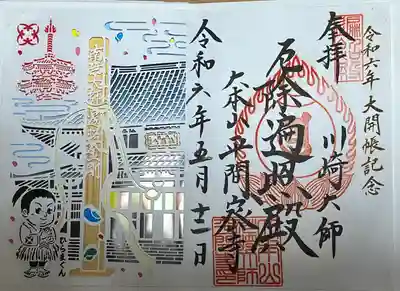 令和六年 大開帳記念
奉拝
川崎大師
厄除遍照殿
大本山平間寺
令和六年五月十二日
ひらまくん